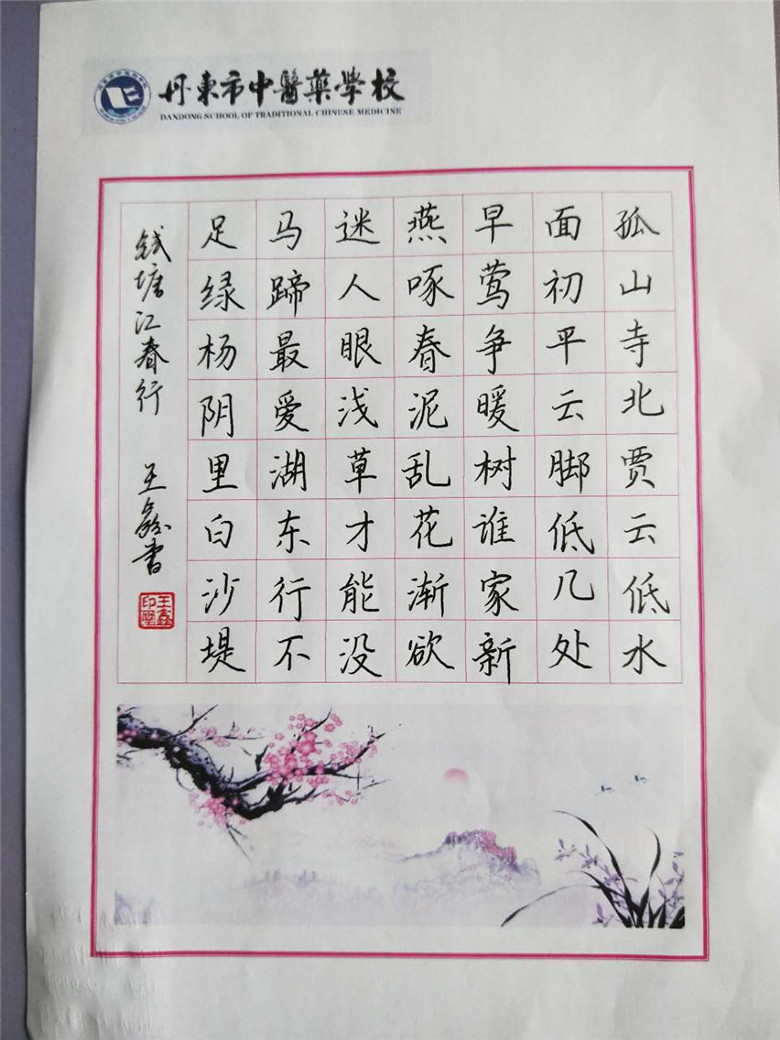 丹東市中醫藥學校
DANDONG SCHOOL OF TRADITIONAL CHINESE MEDICINE
孤山寺北贾云低水
面初平云脚低几处
早莺争暖树谁家新
燕啄春泥乱花渐欲
迷人眼浅草才能没
马蹄最爱湖东行不
足绿杨阴里白沙堤
钱塘江春行 王鑫书